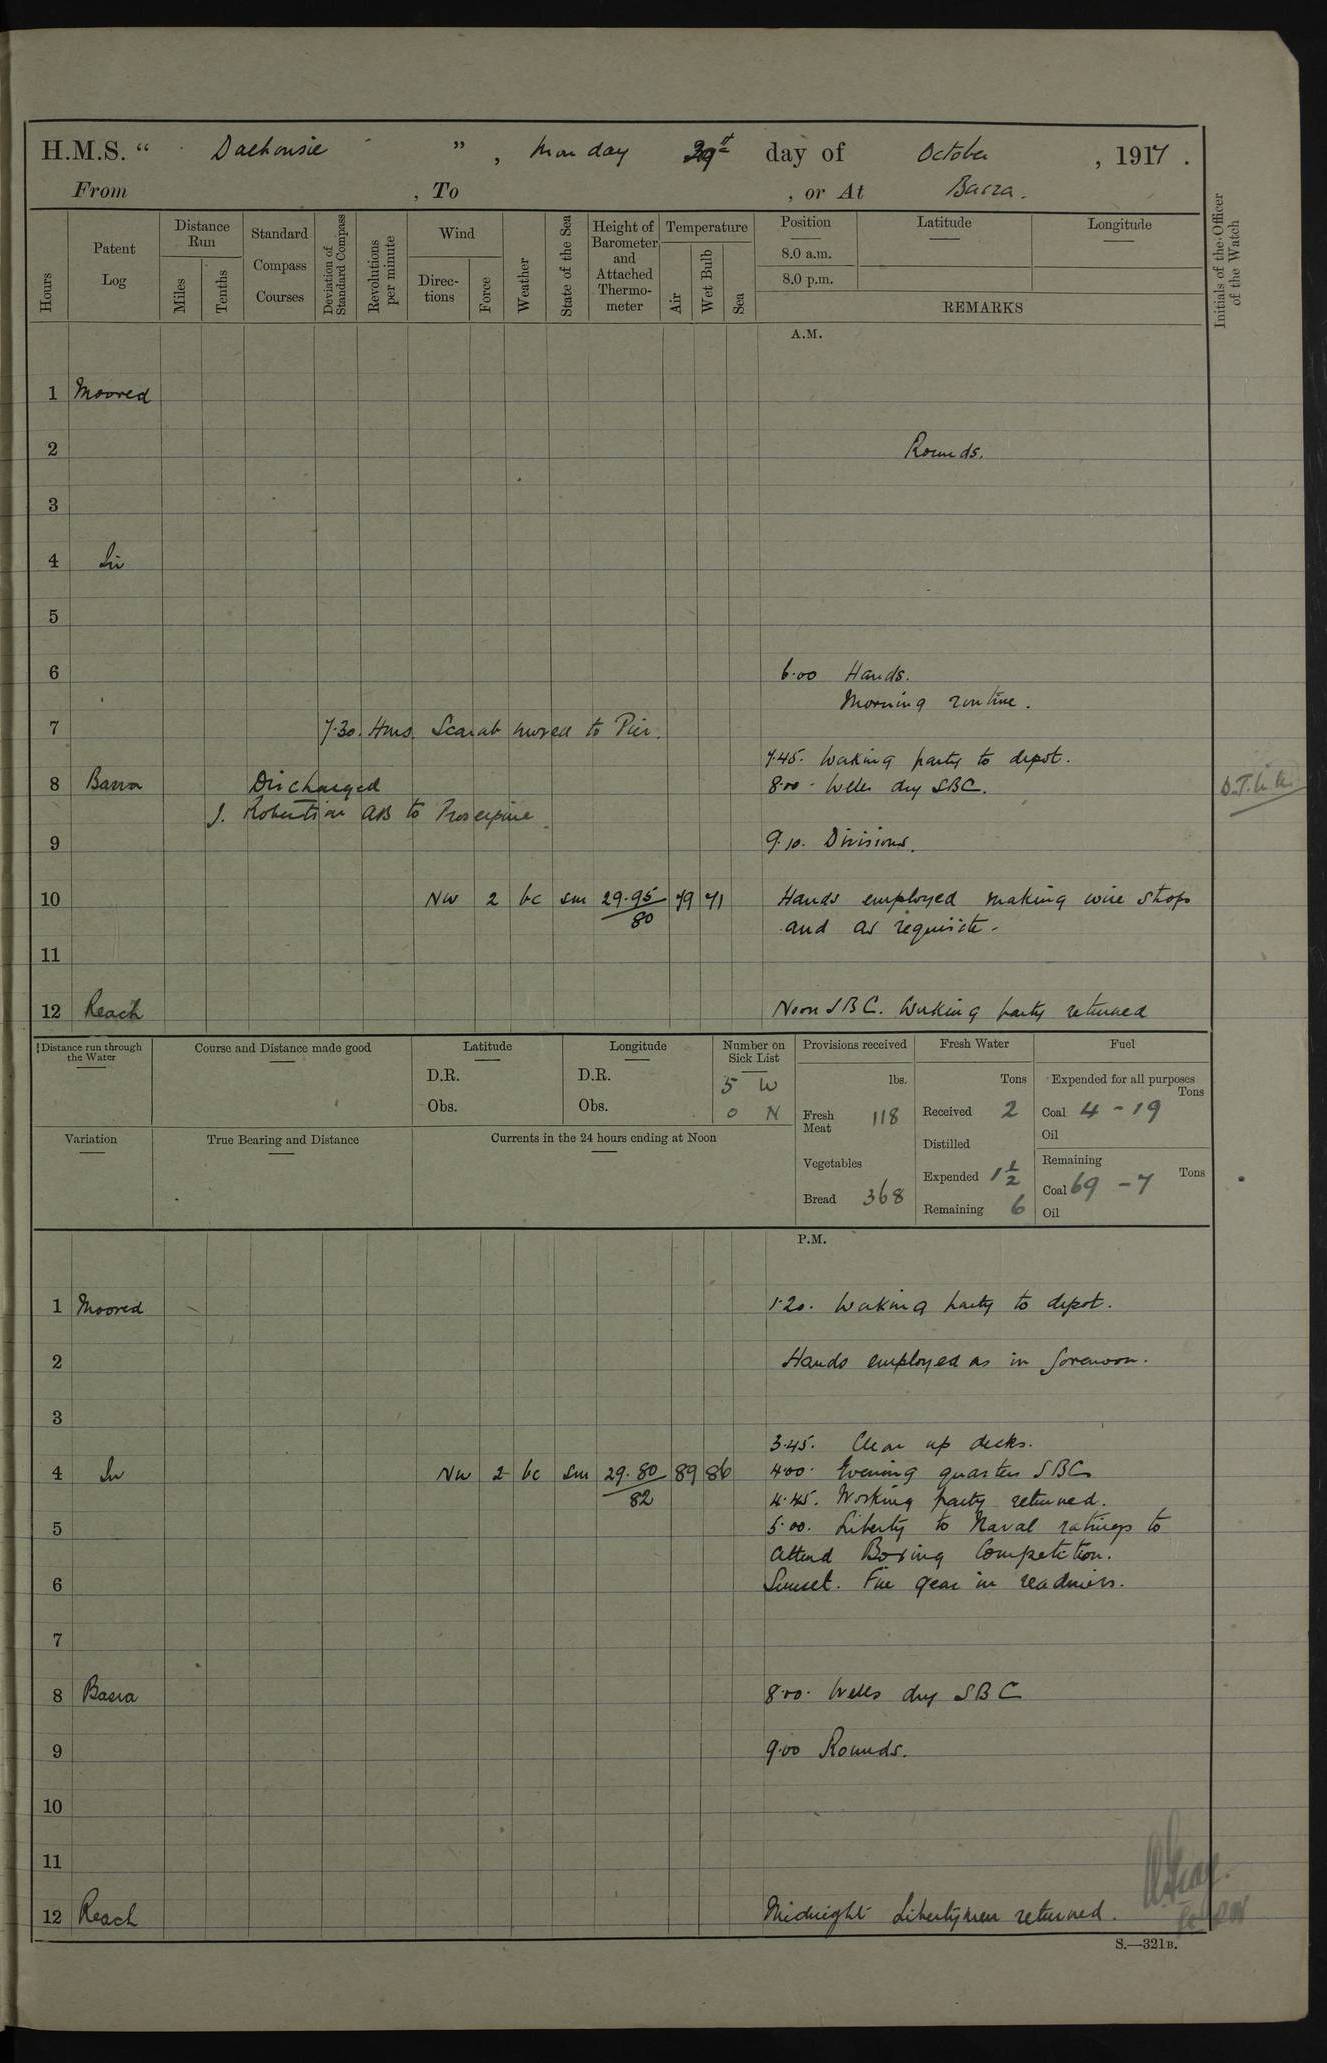 H.M.S. " Dalhousie ", Monday 29th day of October, 1917.
From , To , or At Basra.
Hours
Patent Log
Distance Run
Miles
Tenths
Standard Compass Courses
Deviation of Standard Compass
Revolutions per minute
Wind
Directions
Force
Weather
State of the Sea
Height of Barometer and Attached Thermometer
Temperature
Air
Wet Bulb
Sea
Position
8.0 a.m.
8.0 p.m.
Latitude
Longitude
REMARKS
Initials of the Officer of the Watch
A.M.
1 Moored
2 Rounds.
3
4 In
5
6 6.00 Hands.
Morning routine.
7 7.30. Hms. Scarab moved to Pier.
7.45. Working party to depot.
8 Basra Discharged 8.00. Wells dry SBC.
J. Robertson AB to Proserpine.
9 9.10. Divisions.
10 NW 2 bc sm 29.95 79 71 Hands employed making wire stops
80 and as requisite.
11
12 Reach Noon SBC. Working party returned
Distance run through the Water
Course and Distance made good
Latitude
D.R.
Obs.
Longitude
D.R.
Obs.
Number on Sick List
5 W
0 N
Provisions received
lbs.
Fresh Meat 118
Vegetables
Bread 368
Fresh Water
Tons
Received 2
Distilled
Expended 1 1/2
Remaining 6
Fuel
Expended for all purposes
Tons
Coal 4 - 19
Oil
Remaining
Tons
Coal 69 - 7
Oil
Variation
True Bearing and Distance
Currents in the 24 hours ending at Noon
P.M.
1 Moored 1.20. Working party to depot.
2 Hands employed as in forenoon.
3
3.45. Clear up decks.
4 In NW 2 bc sm 29.80 89 86 4.00. Evening quarters SBC
82 4.45. Working party returned.
5 5.00. Liberty to Naval ratings to
attend Boxing Competition.
6 Sunset. Fire gear in readiness.
7
8 Basra 8.00. Wells dry SBC
9 9.00 Rounds.
10
11
12 Reach Midnight Libertymen returned.
S.—321B.